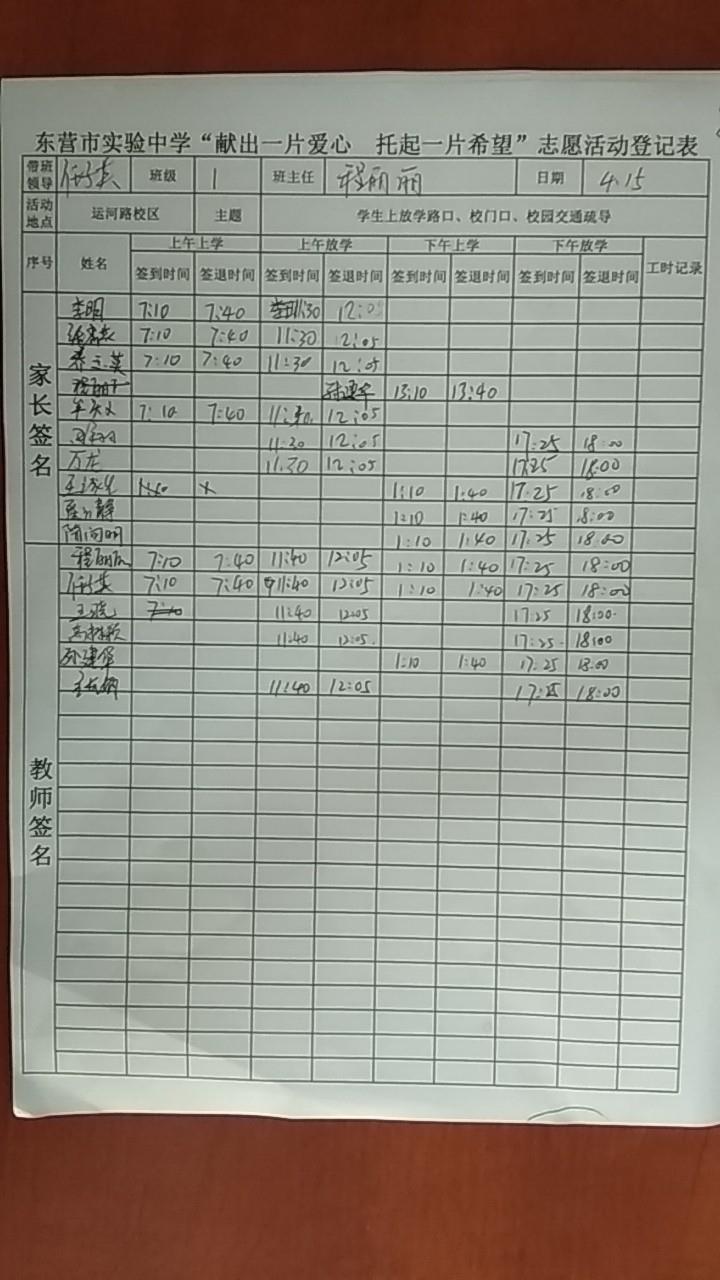 东营市实验中学“献出一片爱心 托起一片希望”志愿活动登记表
带班领导 班级 1 班主任 程丽丽 日期 4.15
活动地点 运河路校区 主题 学生上放学路口、校门口、校园交通疏导
序号 姓名 上午上学 上午放学 下午上学 下午放学 工时记录
签到时间 签退时间 签到时间 签退时间 签到时间 签退时间 签到时间 签退时间
家长签名
李明 7:10 7:40 11:30 12:0
7:10 7:40 11:30 12:05
7:10 7:40 11:30 12:05
13:10 13:40
7:10 7:40 11:30 12:05
11:30 12:05 17:25 18:00
万龙 11.30 12:05 17:25 18:00
1:10 1:40 17:25 18:00
1:10 1:40 17:25 18:00
1:10 1:40 17:25 18:00
教师签名
程丽丽 7:10 7:40 11:40 12:05 1:10 1:40 17:25 18:00
7:10 7:40 11:40 12:05 1:10 1:40 17:25 18:00
王晓 7:10 11:40 12:05 17:25 18:00
11:40 12:05 17:25 18:00
孙建华 1:10 1:40 17:25 18:00
11:40 12:05 17:25 18:00